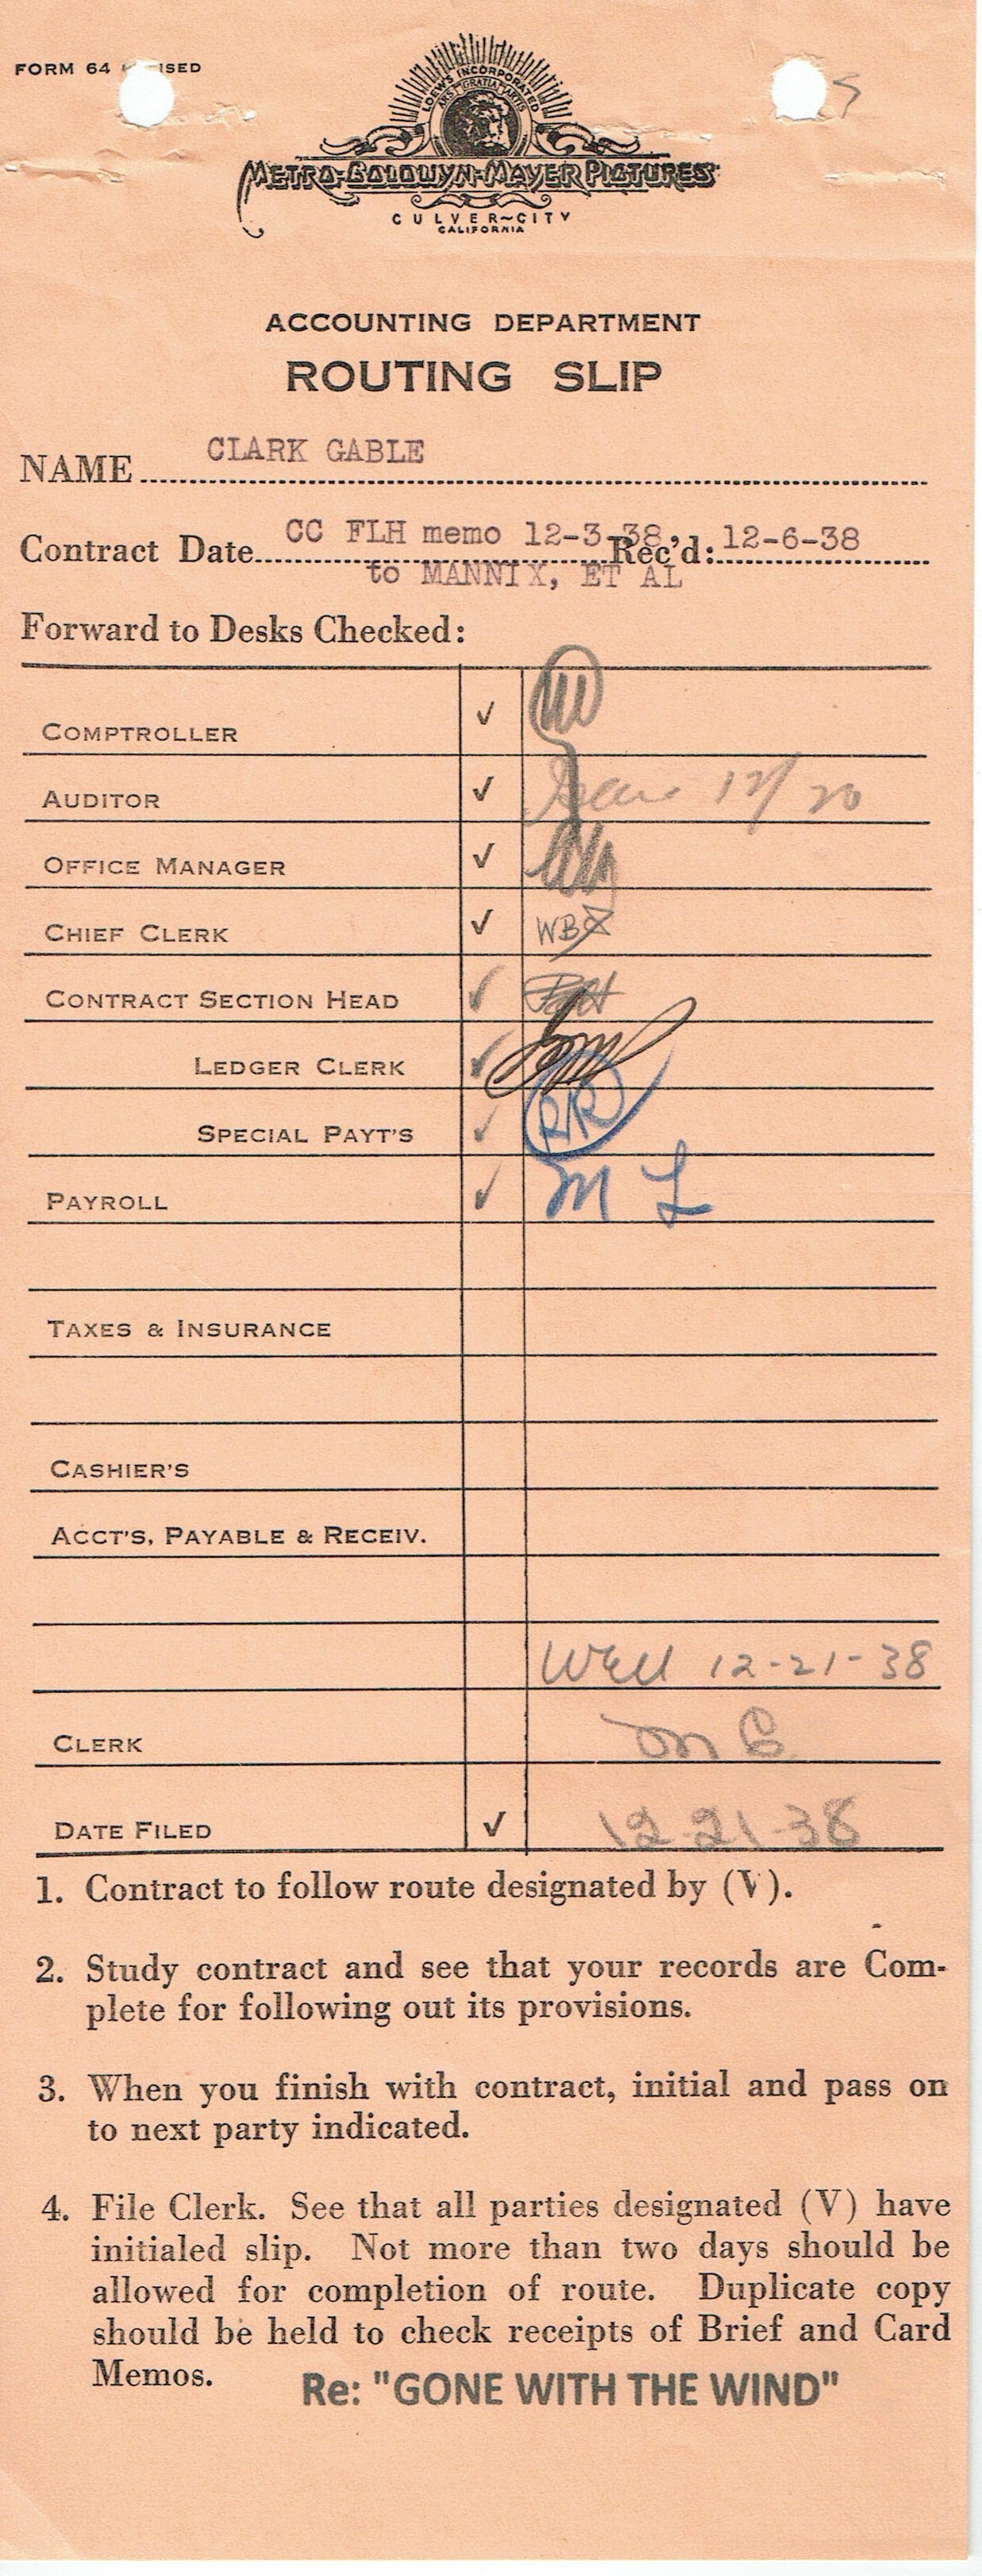 FORM 64 ISED
LOEWS INCORPORATED
ARS GRATIA ARTIS
METRO-GOLDWYN-MAYER PICTURES
CULVER~CITY
CALIFORNIA
ACCOUNTING DEPARTMENT
ROUTING SLIP
NAME CLARK GABLE
Contract Date CC FLH memo 12-3-38, Rec'd: 12-6-38
to MANNIX, ET AL
Forward to Desks Checked:
COMPTROLLER ✓
AUDITOR ✓ 12/20
OFFICE MANAGER ✓
CHIEF CLERK ✓ WB
CONTRACT SECTION HEAD ✓
LEDGER CLERK ✓
SPECIAL PAYT'S ✓ RR
PAYROLL ✓ M L
TAXES & INSURANCE
CASHIER'S
ACCT'S, PAYABLE & RECEIV.
12-21-38
CLERK
DATE FILED ✓ 12-21-38
1. Contract to follow route designated by (V).
2. Study contract and see that your records are Com-
plete for following out its provisions.
3. When you finish with contract, initial and pass on
to next party indicated.
4. File Clerk. See that all parties designated (V) have
initialed slip. Not more than two days should be
allowed for completion of route. Duplicate copy
should be held to check receipts of Brief and Card
Memos. Re: "GONE WITH THE WIND"